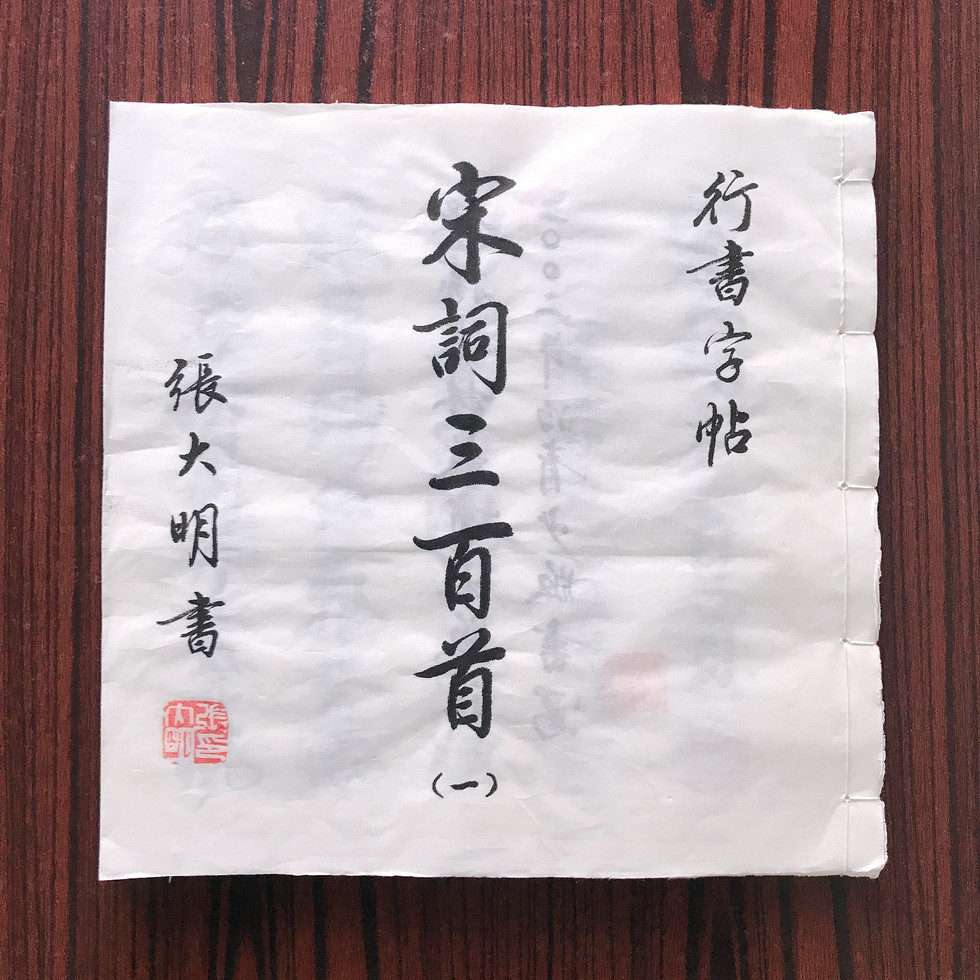 行書字帖
宋詞三百首
(一)
張大明書
張大明印